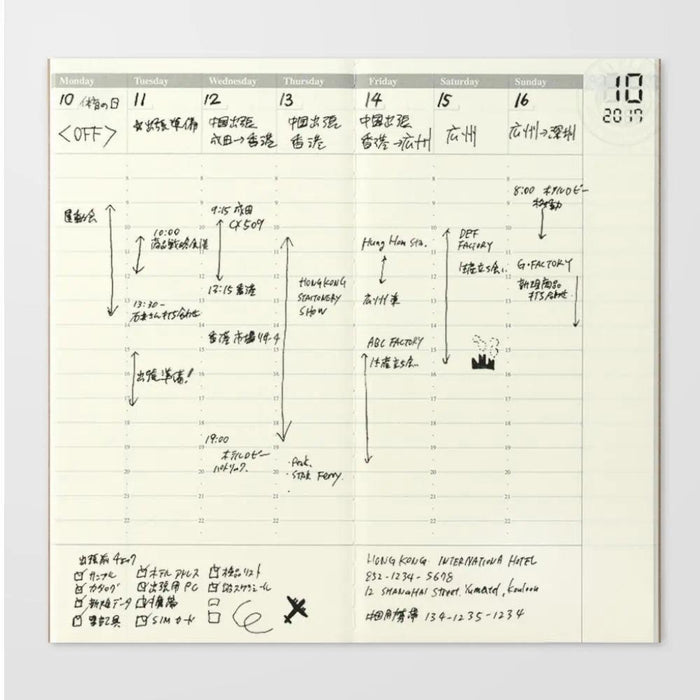 Monday Tuesday Wednesday Thursday Friday Saturday Sunday
10 体育の日
<OFF>
11
☆出張準備
12
中国出張
成田→香港
13
中国出張
香港
14
中国出張
香港→広州
15
広州
16
広州→深圳
10
2017
運動会
10:00
商品戦略会議
13:30-
打ち合わせ
出張準備!
9:15 成田
CX509
13:15 香港
香港市場
19:00
ホテルロビー
HONGKONG
STATIONERY
SHOW
Park.
STAR Ferry.
Hung Hom Sta.
広州東
ABC FACTORY
生産立ち会い
DEF
FACTORY
生産立ち会い
8:00 ホテルロビー
移動
G・FACTORY
新規商品
打ち合わせ
出張前チェック
サンプル
カタログ
新規データ
筆記具
ホテルアドレス
出張用PC
携帯
SIMカード
検品リスト
HONG KONG INTERNATIONAL HOTEL
852-1234-5678
12 SHANGHAI Street, Yumatei, Kowloon
中国用携帯 134-1235-1234